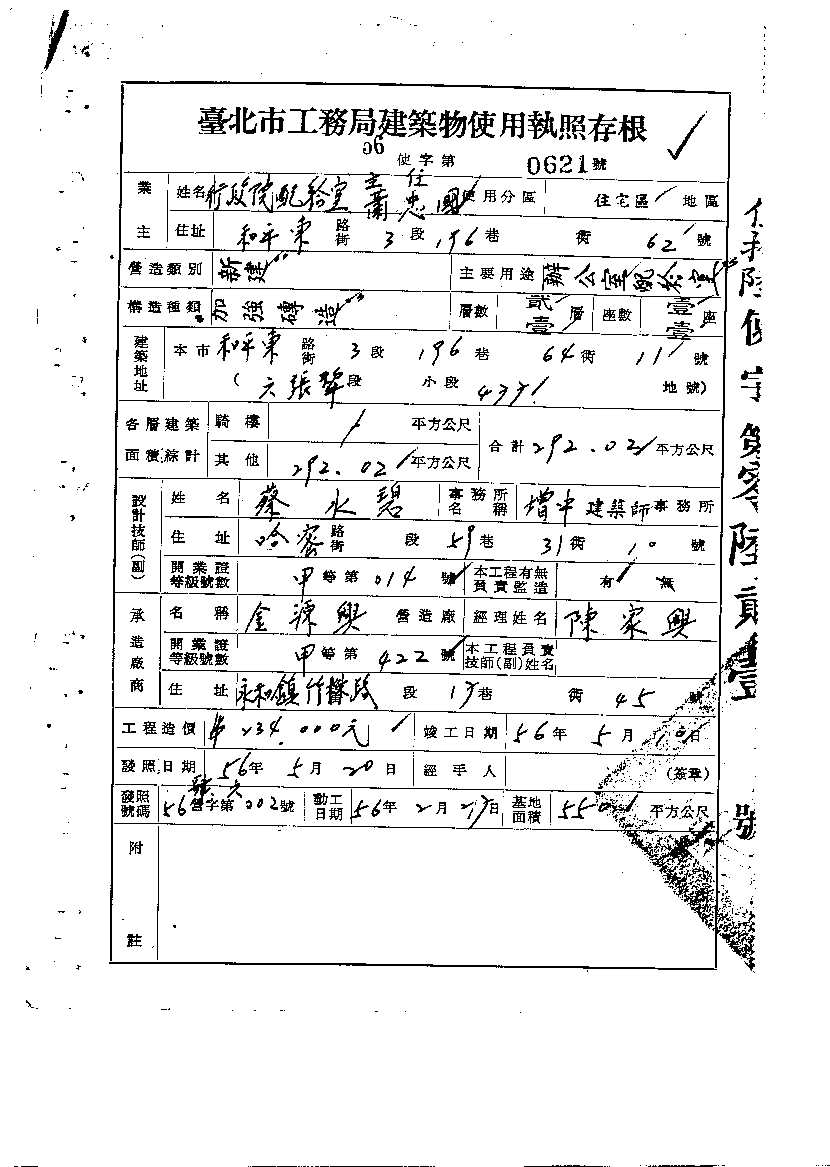 臺北市工務局建築物使用執照存根
56 使字第 0621 號
業主 姓名 行政院配給室 主任 蕭忠國 使用分區 住宅區 地區
住址 和平東 路街 3 段 196 巷 衖 62 號
營造類別 新建 主要用途 辦公室配給室
構造種類 加強磚造 層數 貳壹 層 座數 壹壹 座
建築地址 本市 和平東 路街 3 段 196 巷 64 衖 11 號
( 六張犂 段 小段 433 地號)
各層建築面積綜計 騎樓 平方公尺 合計 292.02 平方公尺
其他 292.02 平方公尺
設計技師(副) 姓名 蔡水碧 事務所名稱 增中 建築師 事務所
住址 哈密 路街 段 59 巷 31 衖 10 號
開業證等級號數 甲 等第 014 號 本工程有無負責監造 有 無
承造廠商 名稱 金源興 營造廠 經理姓名 陳家興
開業證等級號數 甲 等第 422 號 本工程負責技師(副)姓名
住址 永和鎮竹林路 段 17 巷 衖 45 號
工程造價 234,000元 竣工日期 56 年 5 月 10 日
發照日期 56 年 5 月 20 日 經手人 (簽章)
發照號碼 56 營字第 002 號 動工日期 56 年 2 月 27 日 基地面積 550 平方公尺
附註
使字第零陸貳壹號